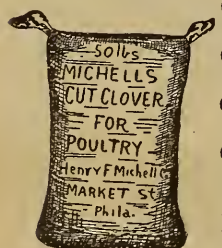 50lbs
MICHELLS
CUT CLOVER
FOR
POULTRY
Henry F Michell C
MARKET St
Phila.